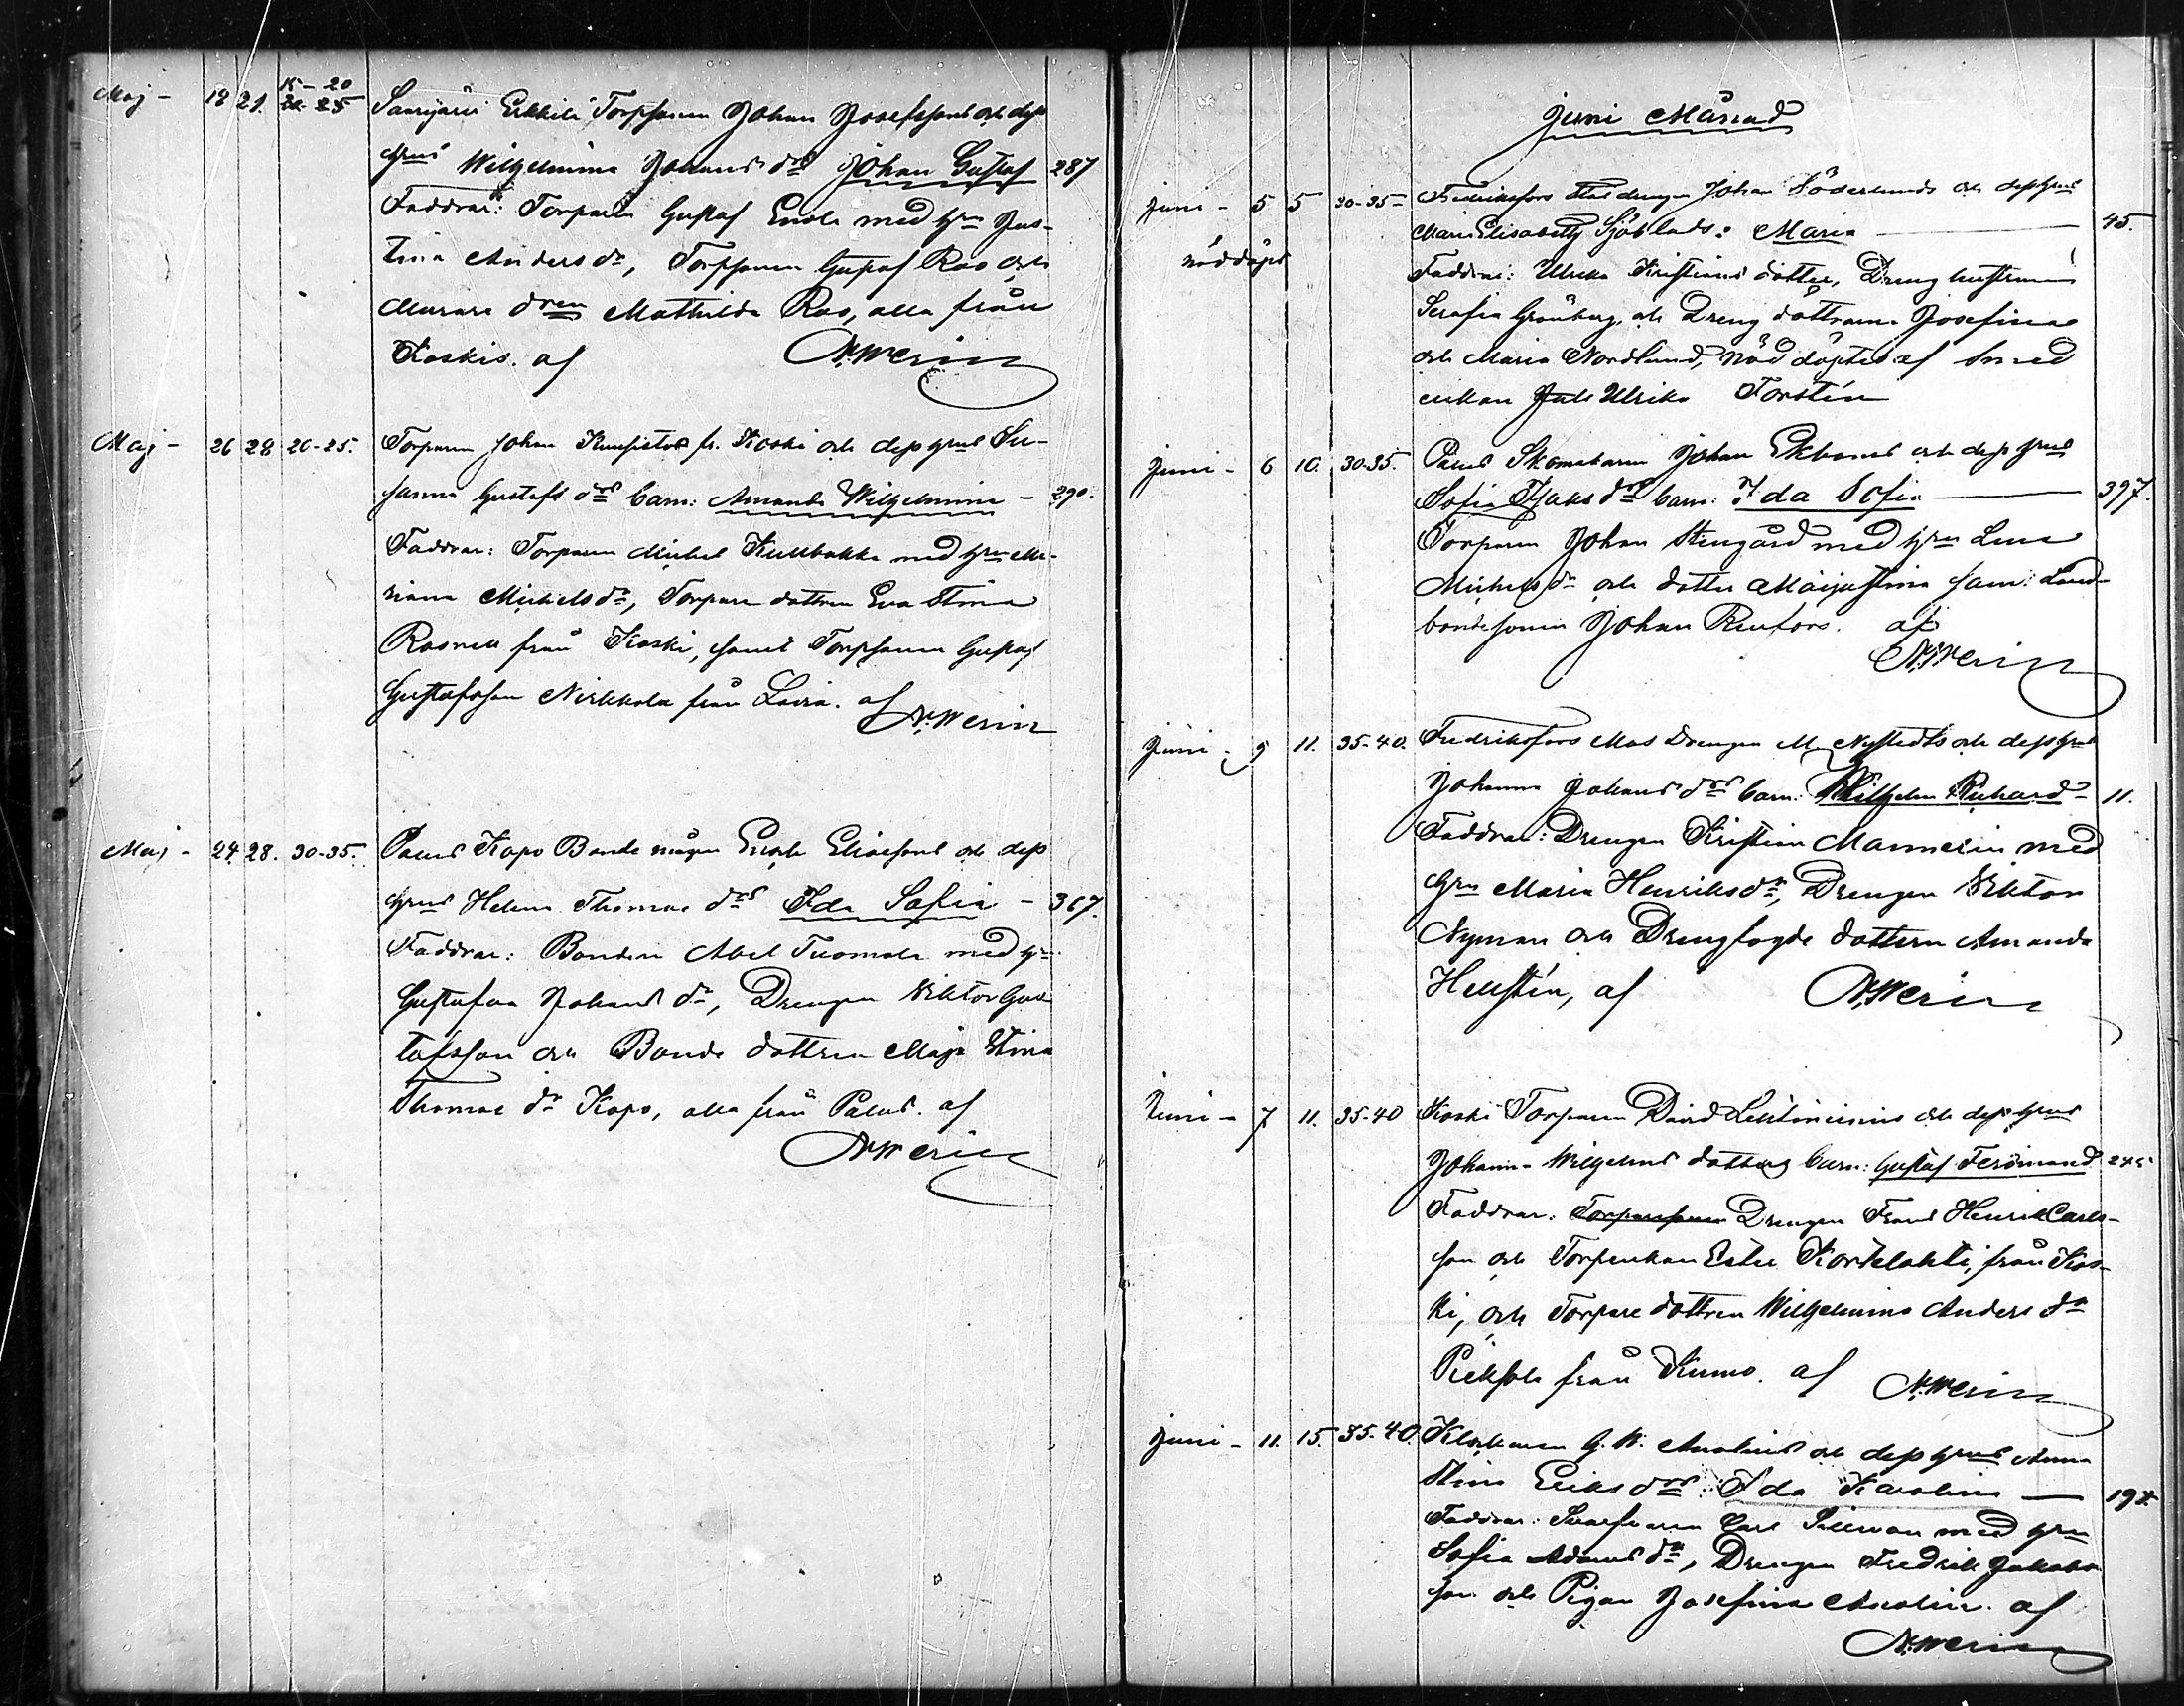 Maj - 18 21. 15-20
20-25 Saarijärvi Erkkilä Torpsonen Johan Josefssons och dess
hrus Wilhelmina Johans drs Johan Gustaf 287
Faddrar: Torparn Gustaf Enola med hru Jus-
tina Anders dr, Torpsonen Gustaf Rao och
Murare dren Mathilda Rao, alla från
Koskis. af N. Merin
Maj - 26 28 20-25. Torparen Johan fr. Koski och dess hrus Su-
sanna Gustafs drs barn: Amanda Wilhelmina - 290.
Faddrar: Torparen Michel Kullbakka med hru Ma-
riana Michels dr, Torpare dottren Eva Stina
från Koski, samt Torpsonen Gustaf
Gustafsson Nirkkola från Lavia. af
N. Merin
Maj - 24 28. 30-35. Påmis Kapo Bonde mågen Enok Eliassons och dess
hrus Helena Thomas drs Ida Sofia - 367.
Faddrar: Bonden Abel Tuomola med hru
Gustafva Johans dr, Drengen Viktor Gus-
tafsson och Bonde dottren Maja Stina
Thomas dr Kapo, alla från Påmis. af
N. Merin
Juni Månad
Juni - 5 5 30-35 Fredriksfors Stal drengen Johan Söderlunds och dess hrus
Maria Elisabeth Sjöblads: Maria 45.
nöddöpt
Faddrar: Ulrika Kristians dotter, Dreng hustrun
Serafia Grönberg, och Dreng döttrarne Josefina
och Maria Nordlund, nöddöptes af Smed
enkan Ulrika Forstén
Juni - 6 10. 30-35. Påmis Skomakaren Johan Ekboms och dess hrus
Sofia Isaks drs barn: Ida Sofia 397.
Torparen Johan Stengård med hru Lena
Michels dr och dotter Maijastina samt Land-
bondesonen Johan Renfors. af
N. Merin
Juni - 9 11. 35-40. Fredriksfors Mas Drengen M. Nystedts och dess hrus
Johanna Johans drs barn: Wilhelm Richard - 11.
Faddrar: Drengen Kristian Mannerin med
hru Maria Henriks dr, Drengen Viktor
Nyman och Drengfogde dottern Amanda
Hellstén, af N. Merin
Juni - 7 11. 35-40 Koski Torparen David Lehtiniemis och dess hrus
Johanna Wilhelms dotters barn: Gustaf Ferdinand 245
Faddrar: Torparesonen Drengen Frans Henrik Carls-
son och Torpenkan Ester Kortelahti, från Kos-
ki, och Torpare dottren Wilhelmina Anders dr
från Kumo. af N. Merin
Juni - 11. 15. 35-40. Klockaren G. W. Anolins och dess hrus Anna
Stina Eriks drs: Ida Karolina 194.
Faddrar: Svarfvaren Carl Sillman med hru
Sofia Adams dr, Drengen Fredrik Jakobs-
son och Pigan Josefina Anolin. af
N. Merin